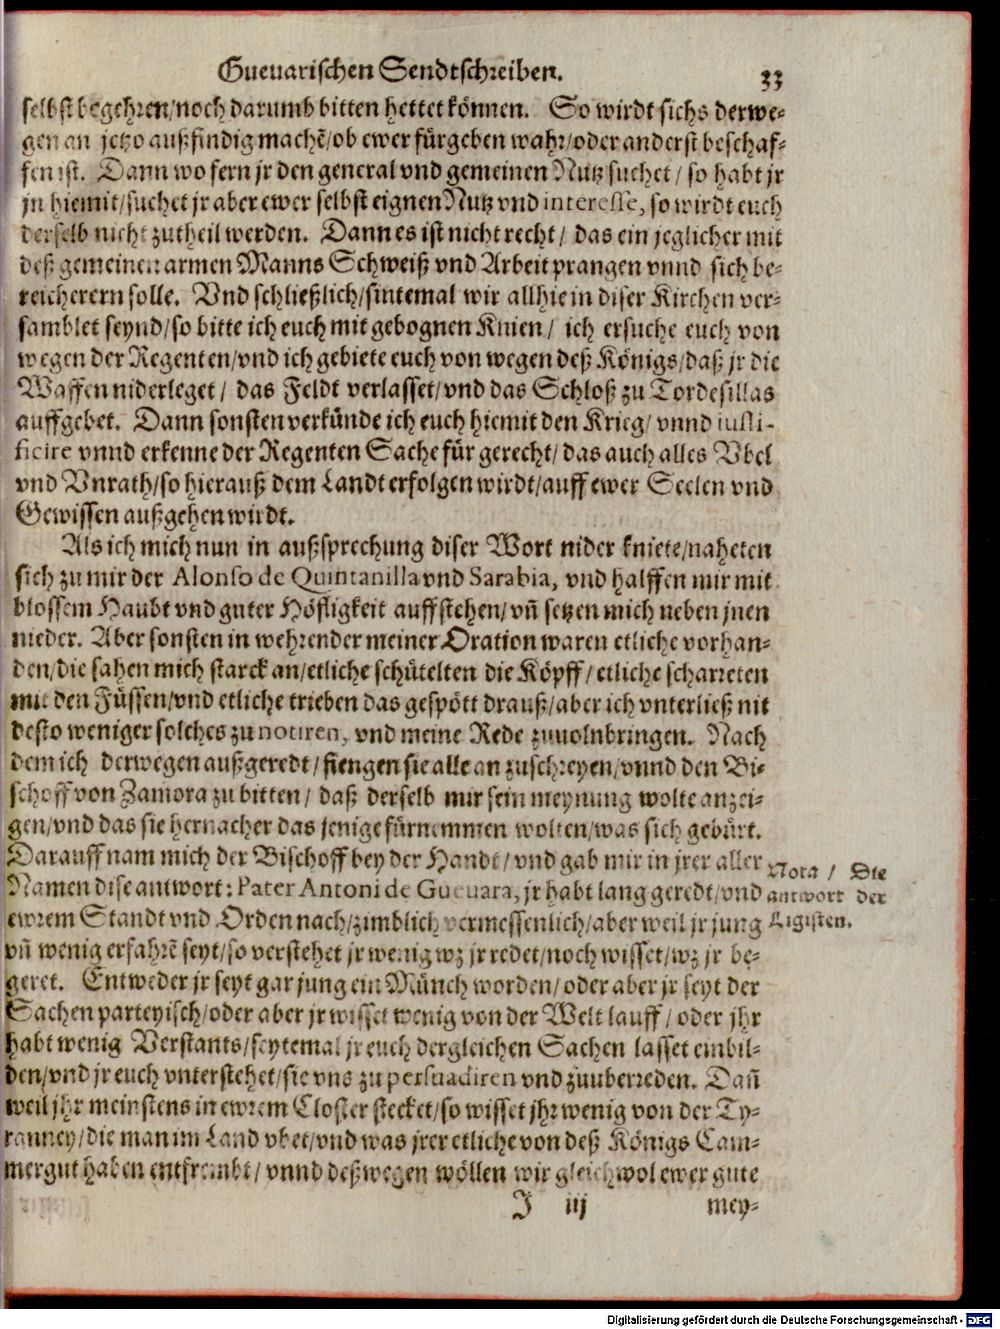 Gueuarischen Sendtschreiben. 33
selbst begehren/noch darumb bitten hettet können. So wirdt sichs derwe-
gen an jetzo außfindig machē/ob ewer fürgeben wahr/oder anderst beschaf-
fen ist. Dann wo fern jr den general vnd gemeinen Nutz suchet/ so habt jr
jn hiemit/suchet jr aber ewer selbst eignen Nutz vnd interesse, so wirdt euch
derselb nicht zutheil werden. Dann es ist nicht recht/ das ein jeglicher mit
deß gemeinen armen Manns Schweiß vnd Arbeit prangen vnnd sich be-
reicherern solle. Vnd schließlich/sintemal wir allhie in diser Kirchen ver-
samblet seynd/so bitte ich euch mit gebognen Knien/ ich ersuche euch von
wegen der Regenten/vnd ich gebiete euch von wegen deß Königs/daß jr die
Waffen niderleget/ das Feldt verlasset/vnd das Schloß zu Tordesillas
auffgebet. Dann sonsten verkünde ich euch hiemit den Krieg/ vnnd iusti-
ficire vnnd erkenne der Regenten Sache für gerecht/ das auch alles Vbel
vnd Vnrath/so hierauß dem Landt erfolgen wirdt/auff ewer Seelen vnd
Gewissen außgehen wirdt.
Als ich mich nun in außsprechung diser Wort nider kniete/naheten
sich zu mir der Alonso de Quintanilla vnd Sarabia, vnd halffen mir mit
blossem Haubt vnd guter Höfligkeit auffstehen/ vñ setzen mich neben jnen
nieder. Aber sonsten in wehrender meiner Oration waren etliche vorhan-
den/die sahen mich starck an/etliche schütelten die Köpff/ etliche scharreten
mit den Füssen/vnd etliche trieben das gespött drauß/aber ich vnterließ nit
desto weniger solches zu notiren, vnd meine Rede zuuolnbringen. Nach
dem ich derwegen außgeredt/ fiengen sie alle an zuschreyen/vnnd den Bi-
schoff von Zamora zu bitten/ daß derselb mir sein meynung wolte anzei-
gen/vnd das sie hernacher das jenige fürnemmen wolten/was sich gebürt.
Darauff nam mich der Bischoff bey der Handt/ vnd gab mir in jrer aller
Namen dise antwort: Pater Antoni de Gueuara, jr habt lang geredt/vnd
ewrem Standt vnd Orden nach/zimblich vermessenlich/aber weil jr jung
Nota/ Die
antwort der
Ligisten.
vñ wenig erfahrē seyt/so verstehet jr wenig wz jr redet/noch wisset/wz jr be-
geret. Entweder jr seyt gar jung ein Münch worden/ oder aber jr seyt der
Sachen parteyisch/oder aber jr wisset wenig von der Welt lauff/ oder jhr
habt wenig Verstants/seytemal jr euch dergleichen Sachen lasset einbil-
den/vnd jr euch vnterstehet/sie vns zu persuadiren vnd zuuberreden. Dañ
weil jhr meinstens in ewrem Closter stecket/so wisset jhr wenig von der Ty-
ranney/die man im Land vbet/vnd was jrer etliche von deß Königs Cam-
mergut haben entfrembt/ vnnd deßwegen wöllen wir gleichwol ewer gute
J iij mey-
Digitalisierung gefördert durch die Deutsche Forschungsgemeinschaft - DFG